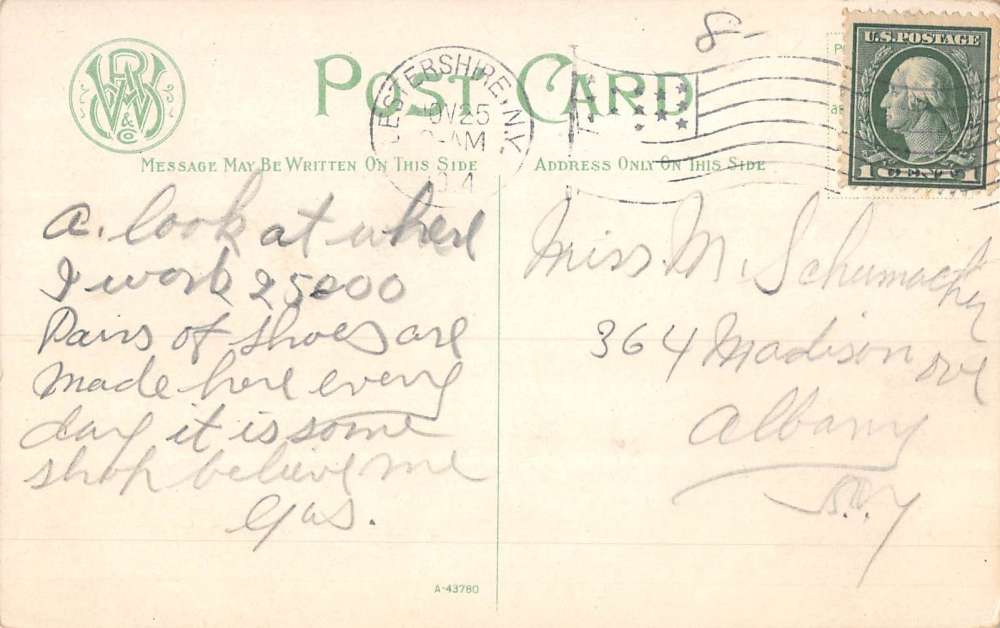 8-
POST CARD
U.S. POSTAGE
1 CENT 1
LESTERSHIRE, N.Y.
NOV 25
AM
& Co
MESSAGE MAY BE WRITTEN ON THIS SIDE
ADDRESS ONLY ON THIS SIDE
a. look at where
I work 25000
Pairs of shoes are
made here every
day it is some
shop believe me
Gus.
Miss M. Schumacher
364 Madison ave
Albany
N.Y
A-43780